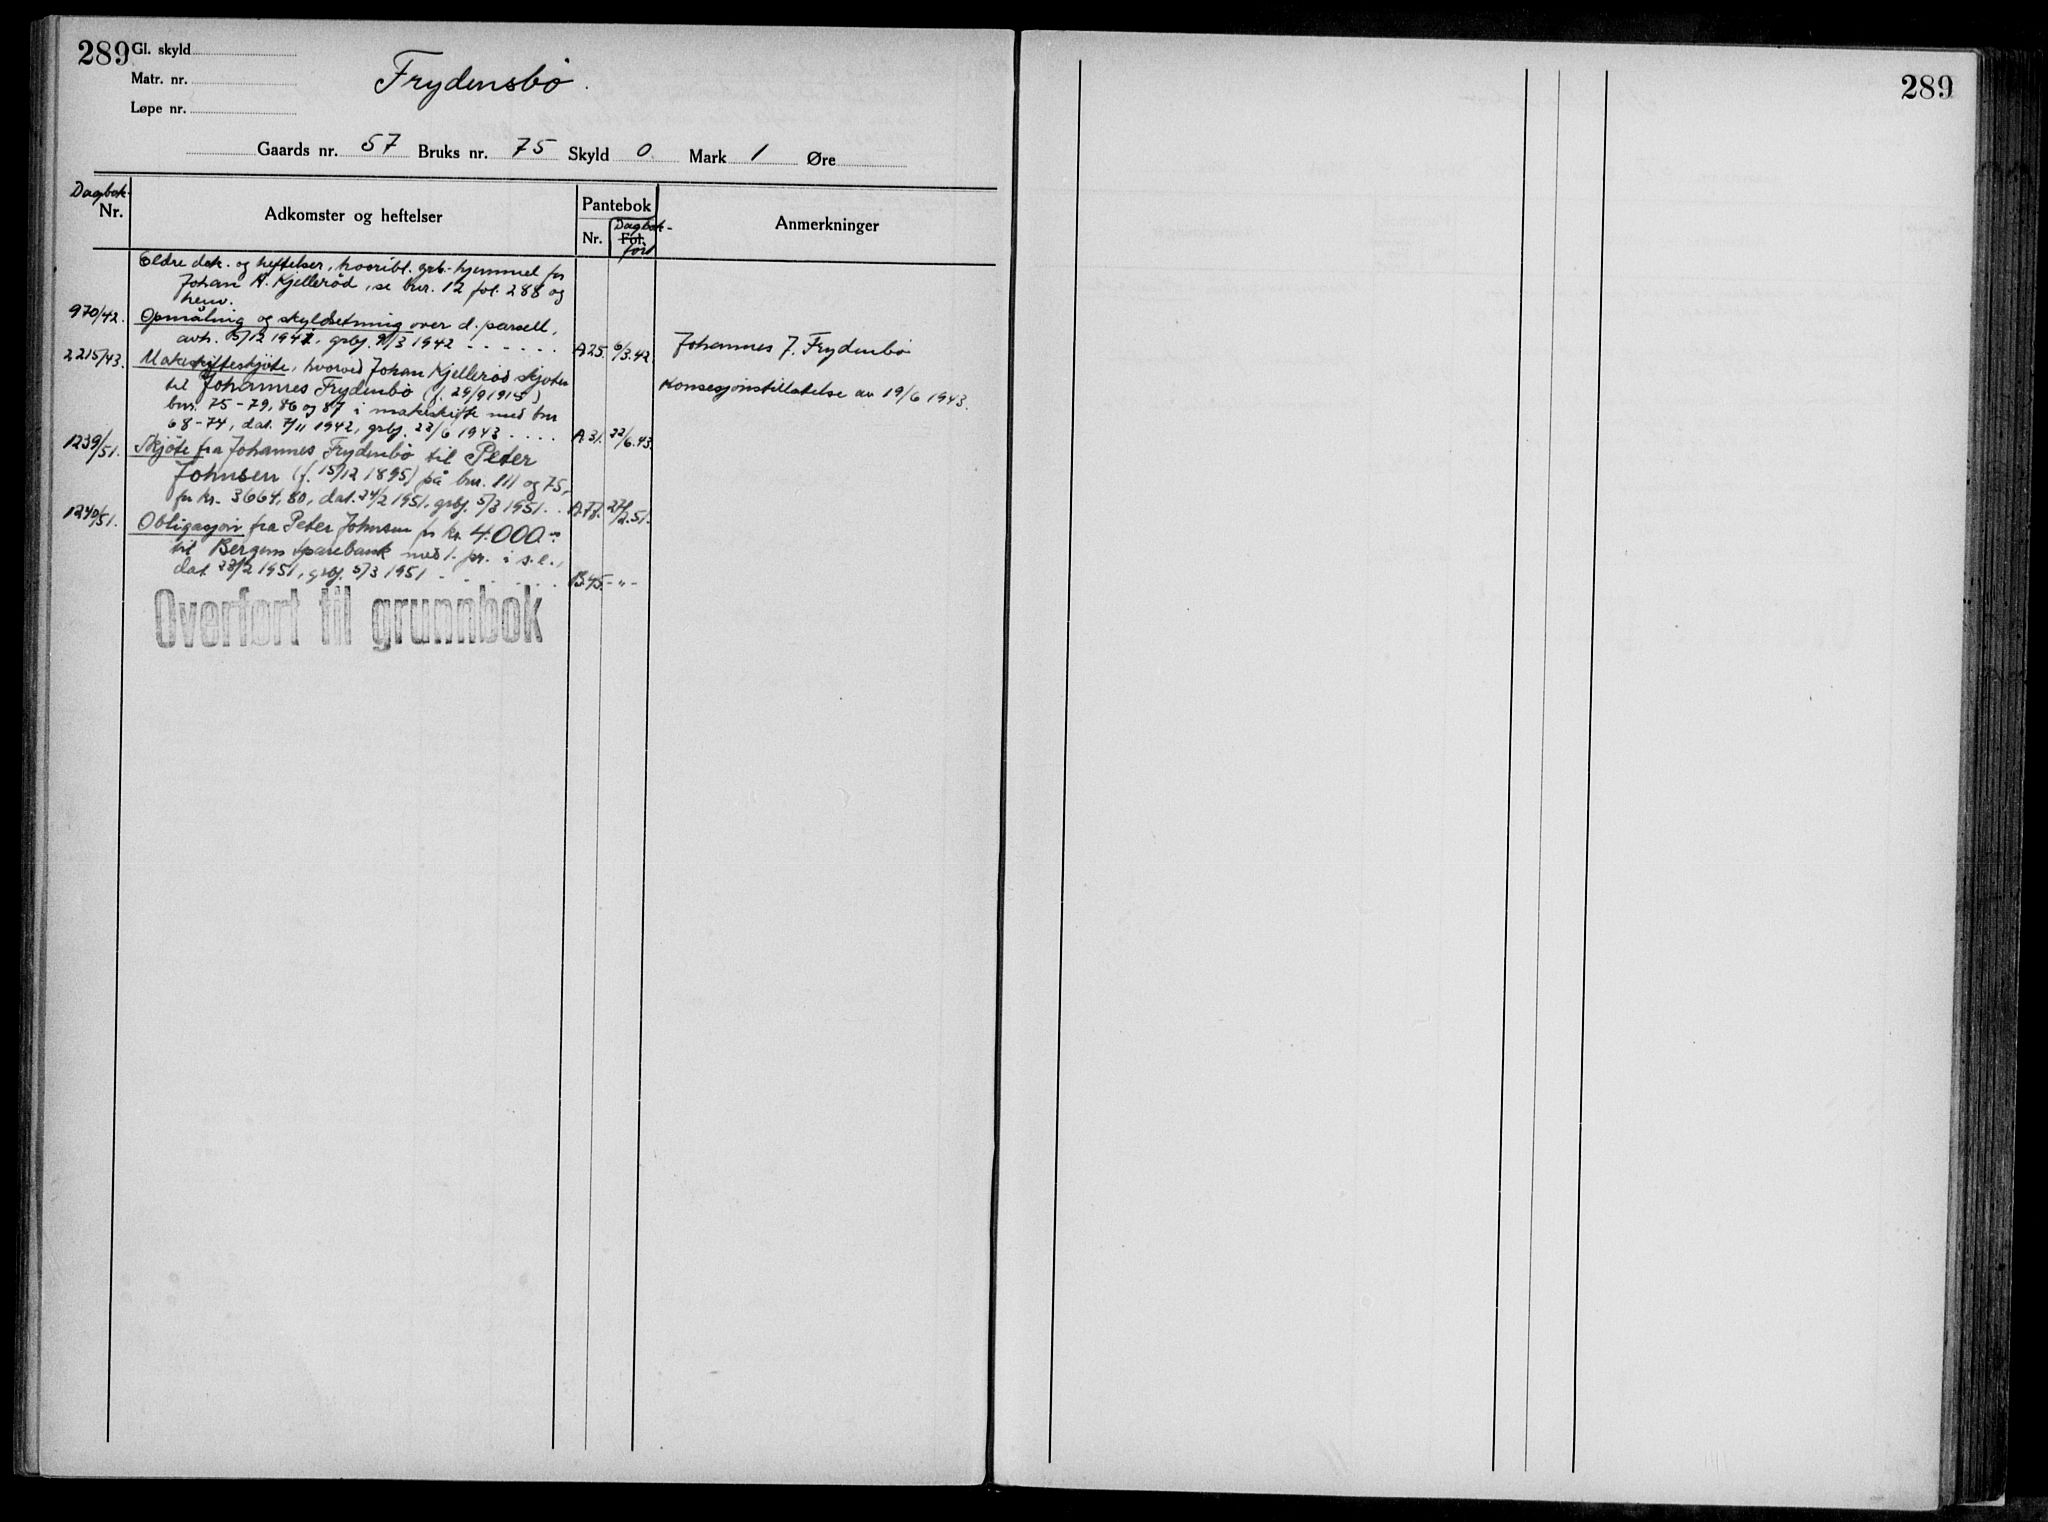 289 Gl. skyld
Matr. nr.
Løpe nr.
Frydensbø.
Gaards nr. 57 Bruks nr. 75 Skyld 0 Mark 1 Øre
Dagbok-
Nr.
Adkomster og heftelser
Pantebok
Nr.
Dagbok-
Fol.
ført
Anmerkninger
Eldre dok. og heftelser, hvoribl. grb. hjemmel for
Johan A. Kjellerød, se bnr. 12 fol. 288 og
henv.
970/42. Opmåling og skyldsetning over d. parsell,
avh. 15/12 1941, grbj. 9/3 1942 - - - - - - A25. 6/3.42. Johannes J. Frydenbø
2215/43. Makeskifteskjøte, hvorved Johan Kjellerød skjøter
til Johannes Frydenbø (f. 29/9 1915) Konsesjonstillatelse av 19/6 1943.
bnr. 75-79, 86 og 87 i makeskifte med bnr
68-74, dat. 7/11 1942, grbj. 23/6 1943 . . . . A31. 22/6.43.
1239/51. Skjøte fra Johannes Frydenbø til Peter
Johnsen (f. 15/12 1895) på bnr. 111 og 75,
for kr. 3664,80, dat. 24/2 1951, grbj. 5/3 1951. . A77. 27/2.51.
1240/51. Obligasjon fra Peter Johnsen for kr. 4.000.-
til Bergens Sparebank med 1. pr. i s.e.,
dat 23/2 1951, grbj. 5/3 1951 - . . . . . . B45. - " -
Overført til grunnbok
289